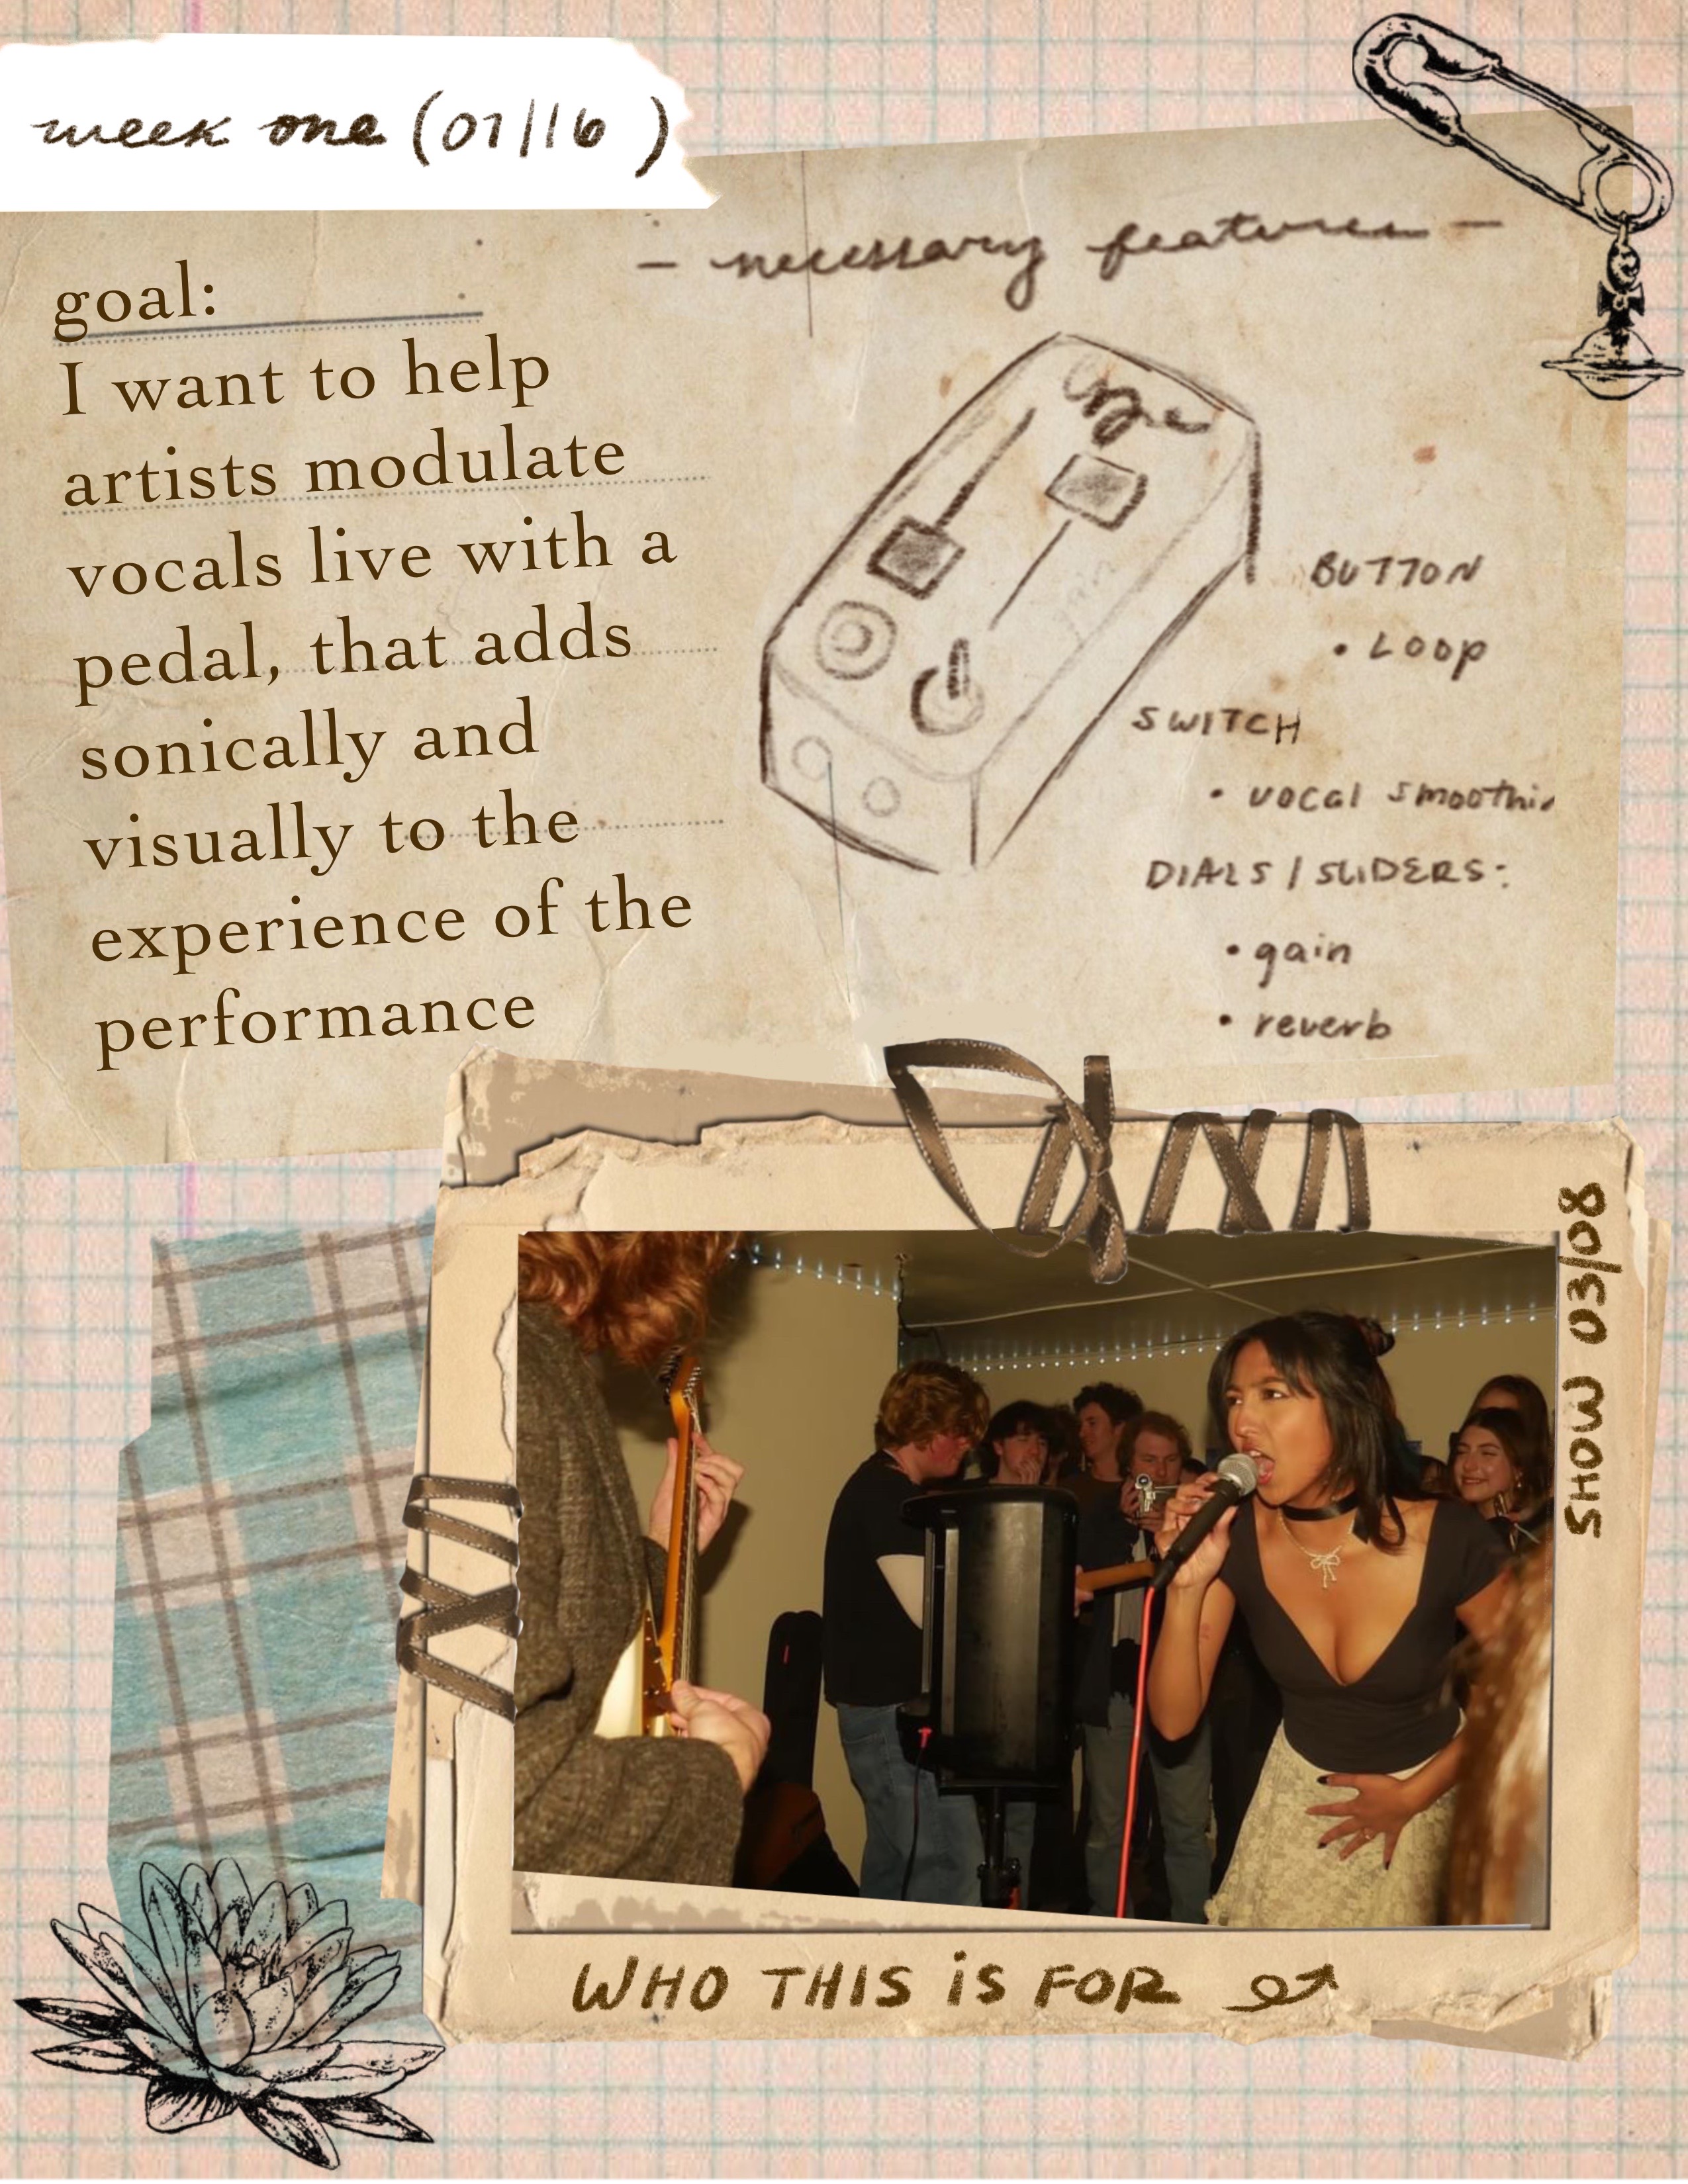 week one (01/16)
goal:
I want to help
artists modulate
vocals live with a
pedal, that adds
sonically and
visually to the
experience of the
performance
- necessary features -
BUTTON
• LOOP
SWITCH
• vocal smoothie
DIALS / SLIDERS:
• gain
• reverb
SHOW 03/08
WHO THIS iS FOR